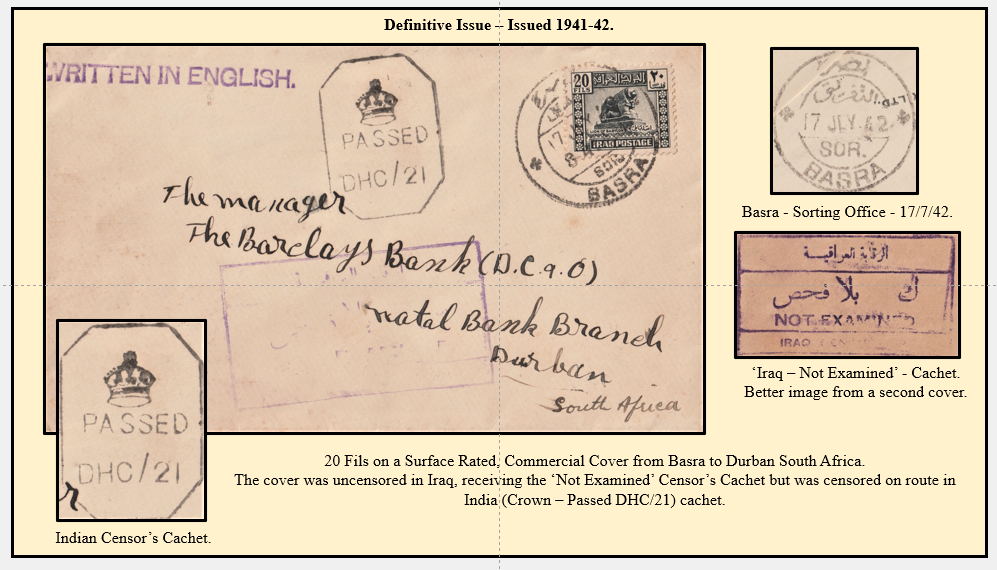 Definitive Issue – Issued 1941-42.
WRITTEN IN ENGLISH.
PASSED
DHC/21
20
FILS
٢٠
IRAQ POSTAGE
SOR.
BASRA
The manager
The Barclays Bank (D.C.&O)
Natal Bank Branch
Durban
South Africa
التفريق
LTD.
17 JLY. 42
SOR.
BASRA
Basra - Sorting Office - 17/7/42.
الرقابة العراقية
بلا فحص
NOT EXAMINED
IRAQ
‘Iraq – Not Examined’ - Cachet.
Better image from a second cover.
PASSED
DHC/21
r
Indian Censor’s Cachet.
20 Fils on a Surface Rated, Commercial Cover from Basra to Durban South Africa.
The cover was uncensored in Iraq, receiving the ‘Not Examined’ Censor’s Cachet but was censored on route in
India (Crown – Passed DHC/21) cachet.